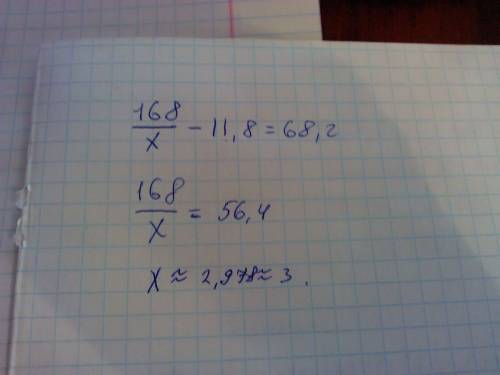 168/x - 11,8 = 68,2
168/x = 56,4
x ≈ 2,978 ≈ 3.